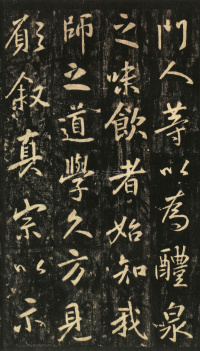 門人等以為醴泉
之味飲者始知我
師之道學久方見
願敘真宗以示